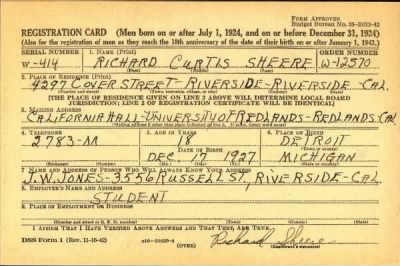 FORM APPROVED
REGISTRATION CARD (Men born on or after July 1, 1924, and on or before December 31, 1924)
(Also for the registration of men as they reach the 18th anniversary of the date of their birth on or after January 1, 1943.)
SERIAL NUMBER 1. NAME (Print) ORDER NUMBER
W-414 RICHARD CURTIS SHEERE W-12570
(First) (Middle) (Last)
2. PLACE OF RESIDENCE (Print)
4297 COVER STREET-RIVERSIDE-RIVERSIDE-CAL.
(Number and street) (Town, township, village, or city) (County) (State)
[THE PLACE OF RESIDENCE GIVEN ON LINE 2 ABOVE WILL DETERMINE LOCAL BOARD
JURISDICTION; LINE 2 OF REGISTRATION CERTIFICATE WILL BE IDENTICAL]
3. MAILING ADDRESS
CALIFORNIA HALL-UNIVERSITY OF REDLANDS-REDLANDS, CAL
4. TELEPHONE 5. AGE IN YEARS 6. PLACE OF BIRTH
2783-M 18 DETROIT
DATE OF BIRTH (Town or county)
DEC. 17 1927 MICHIGAN
(Exchange) (Number) (Mo.) (Day) (Yr.) (State or country)
7. NAME AND ADDRESS OF PERSON WHO WILL ALWAYS KNOW YOUR ADDRESS
J.W. JONES-3556 RUSSELL ST, RIVERSIDE-CAL
8. EMPLOYER'S NAME AND ADDRESS
STUDENT
9. PLACE OF EMPLOYMENT OR BUSINESS
(Number and street or R. F. D. number) (Town) (County) (State)
I AFFIRM THAT I HAVE VERIFIED ABOVE ANSWERS AND THAT THEY ARE TRUE.
DSS Form 1 (Rev. 11-16-42) (OVER) Richard Sheere